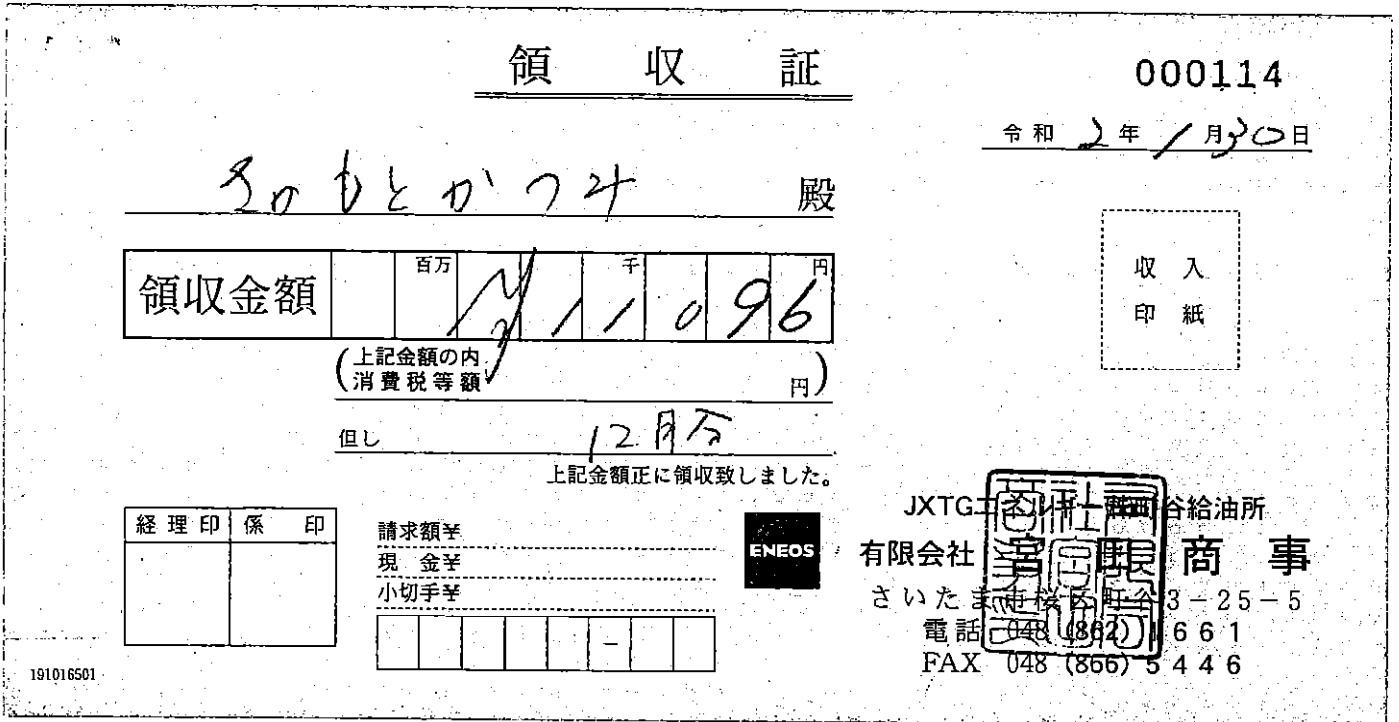 領収証
000114
令和 2年 1月30日
さかもとかつみ 殿
領収金額 百万 千 円 ¥11096
(上記金額の内 消費税等額 円)
但し 12月分
上記金額正に領収致しました。
経理印 係印
請求額¥
現金¥
小切手¥
ENEOS
JXTGエネルギー 町谷給油所
有限会社 宮 商事
さいたま市桜区町谷3-25-5
電話 048 (862) 1661
FAX 048 (866) 5446
191016501